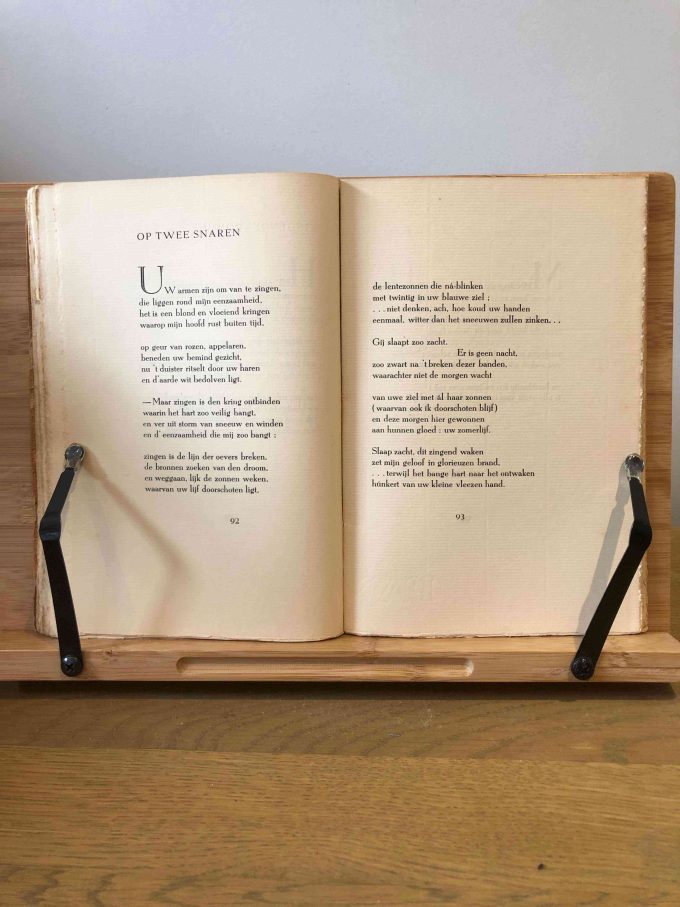 OP TWEE SNAREN
UW armen zijn om van te zingen,
die liggen rond mijn eenzaamheid,
het is een blond en vloeiend kringen
waarop mijn hoofd rust buiten tijd,
op geur van rozen, appelaren,
beneden uw bemind gezicht,
nu 't duister ritselt door uw haren
en d'aarde wit bedolven ligt.
—Maar zingen is den kring ontbinden
waarin het hart zoo veilig hangt,
en ver uit storm van sneeuw en winden
en d' eenzaamheid die mij zoo bangt ;
zingen is de lijn der oevers breken,
de bronnen zoeken van den droom,
en weggaan, lijk de zonnen weken,
waarvan uw lijf doorschoten ligt,
92
de lentezonnen die ná-blinken
met twintig in uw blauwe ziel ;
...niet denken, ach, hoe koud uw handen
eenmaal, witter dan het sneeuwen zullen zinken...
Gij slaapt zoo zacht.
Er is geen nacht,
zoo zwart na 't breken dezer banden,
waarachter niet de morgen wacht
van uwe ziel met ál haar zonnen
(waarvan ook ik doorschoten blijf)
en deze morgen hier gewonnen
aan hunnen gloed : uw zomerlijf.
Slaap zacht, dit zingend waken
zet mijn geloof in glorieuzen brand,
...terwijl het bange hart naar het ontwaken
húnkert van uw kleine vleezen hand.
93